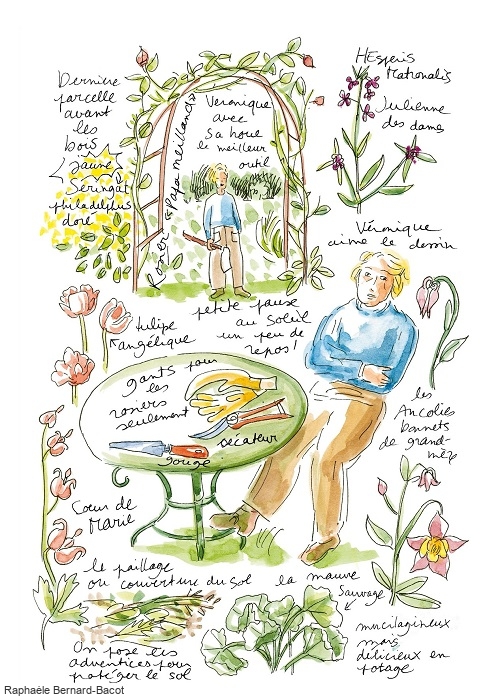 Dernière
parcelle
avant
les
bois
jaune
Seringat
philadelphus
doré
Rosier "Papa meilland"
Veronique
avec
sa houe
le meilleur
outil
HEsperis
Matronalis
Julienne
des dames
Véronique
aime le dessin
petite pause
au soleil
un peu de
repos!
tulipe
angélique
gants pour
les
rosiers
seulement
sécateur
gouge
les
Ancolies
bonnets
de grand-
mère
Cœur de
Marie
le paillage
ou couverture du sol
On pose les
adventices pour
protéger le sol
la mauve
Sauvage
mucilagineux
mais
délicieux en
potage
Raphaèle Bernard-Bacot